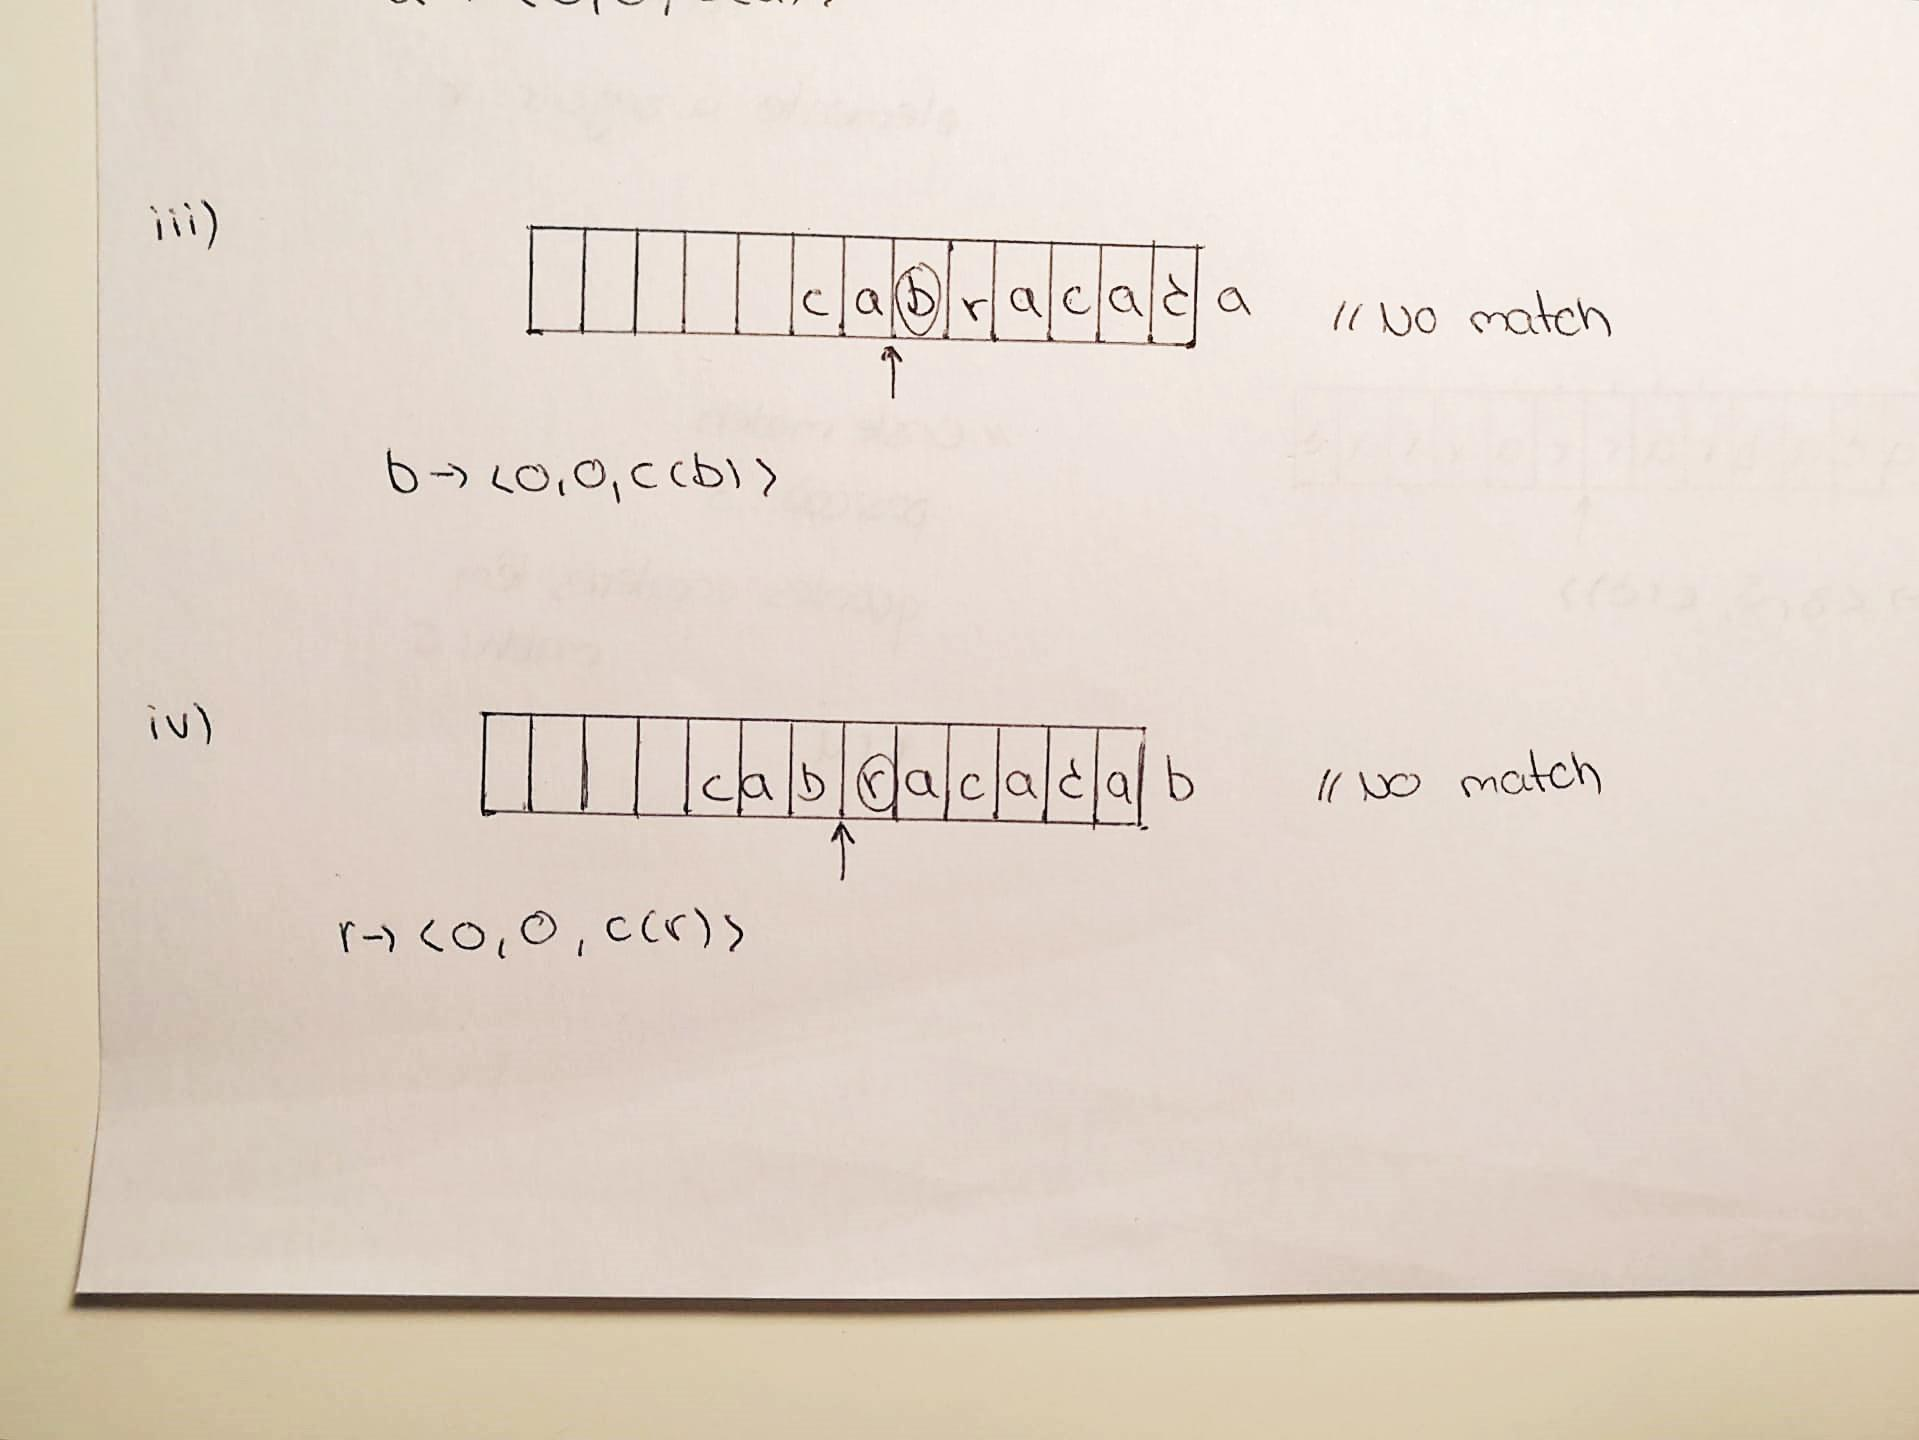 iii)
c a b r a c a d a // No match
b → <0,0,c(b)>
iv)
c a b r a c a d a b // No match
r → <0,0,c(r)>